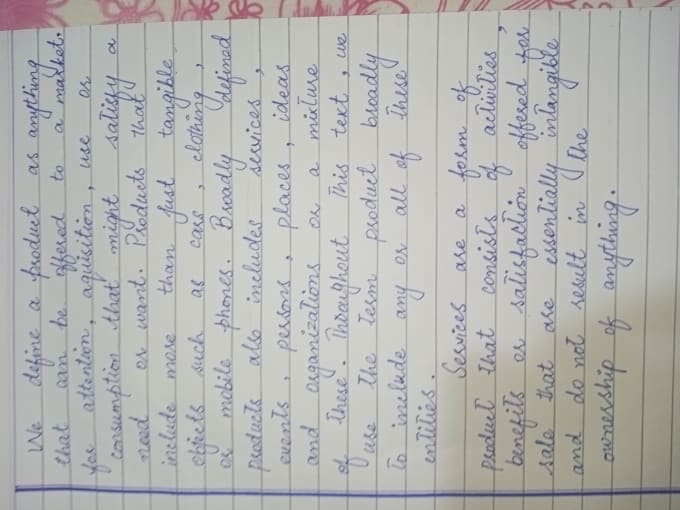 We define a product as anything
that can be offered to a market.
for attention, aquisition, use or
consumption that might satisfy a
need or want. Products that
include more than just tangible
objects such as cars, clothing,
or mobile phones. Broadly defined
products also includes services,
events, persons, places, ideas
and organizations or a mixture
of these. Throughout This text, we
use the term product broadly
to include any or all of these
entities.
Services are a form of
product that consists of activities,
benefits or satisfaction offered for
sale that are essentially intangible
and do not result in the
ownership of anything.